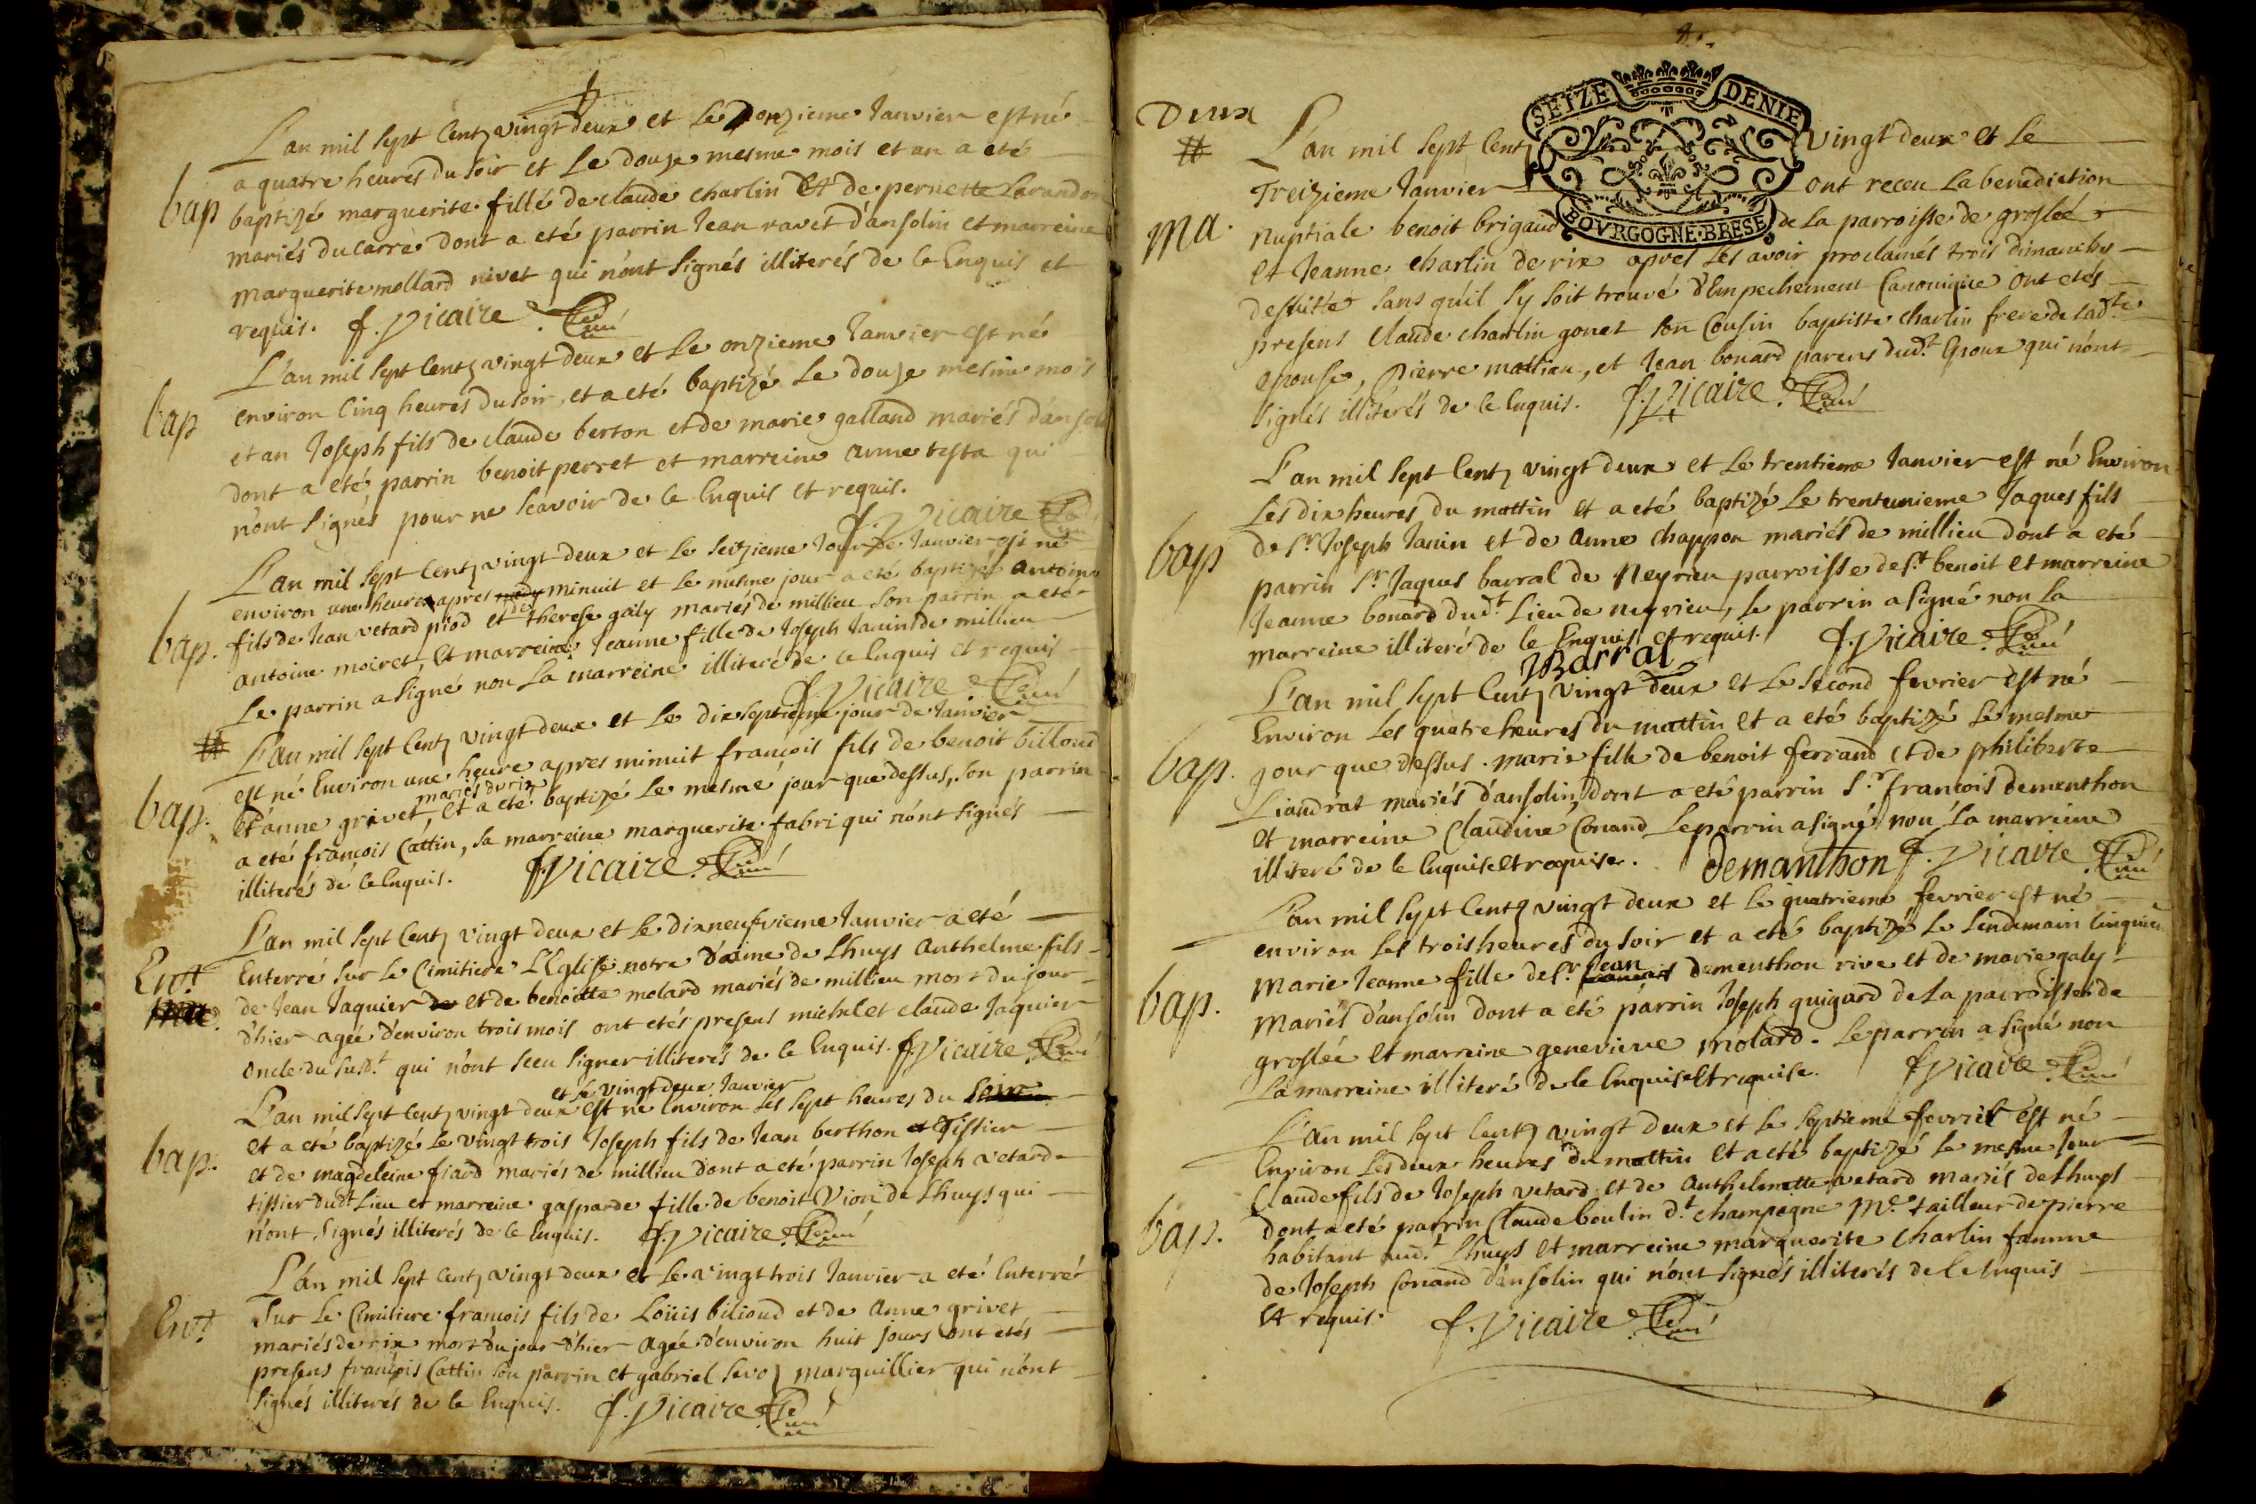 L'an mil sept Centz vingt deux et le onzieme Janvier est né
bap
a quatre heures du soir et le douze mesme mois et an a eté
baptizé marguerite fille de claude charlin Et de pernette
mariés du carré dont a eté parrin Jean ravet d'ansolin et marreine
marguerite mollard nivet qui n'ont signés illiterés de ce Enquis et
requis. f. Vicaire Curé
L'an mil sept Centz vingt deux et le onzieme Janvier est né
bap
environ Cinq heures du soir, et a eté baptizé le douze mesme mois
et an Joseph fils de claude berton et de marie galland mariés d'ansolin
dont a eté, parrin benoit perret et marreine anne testa qui
n'ont signés pour ne scavoir de ce Enquis et requis.
f. Vicaire Curé
L'an mil sept Centz vingt deux et le seizieme Jour de Janvier, est né
bap.
environ une heure apres minuit et le mesme jour a eté baptizé antoine
fils de Jean vetard piod et de therese galy mariés de millieu son parrin a eté
antoine moiret, Et marreine Jeanne fille de Joseph Janin de millieu
Le parrin a signé non La marreine illiteré de ce Enquis et requis
f. Vicaire Curé
L'an mil sept Centz vingt deux et le dix septieme jour de Janvier
bap.
est né Environ une heure apres minuit francois fils de benoit billoud
mariés de rix
Et anne grivet, et a eté baptizé le mesme jour que dessus, son parrin
a eté francois Cattin, sa marreine marguerite fabri qui n'ont signés
illiterés de ce Enquis. f. Vicaire Curé
L'an mil sept Centz vingt deux et le dixneufvieme Janvier a eté
Ent.
Enterré sur le Cimitiere L'Eglise notre Daime de Lhuys Anthelme fils
de Jean Jaquier et de benoitte molard mariés de millieu mort du jour
d'hier agée d'environ trois mois ont etés presens michel et claude Jaquier
oncle du susdt. qui n'ont sceu signer illiterés de ce Enquis. f. Vicaire Curé
et le vingt deux Janvier
L'an mil sept Centz vingt deux est né Environ les sept heures du soir
bap.
et a eté baptizé le vingt trois Joseph fils de Jean berthon Tissier
et de magdeleine fiard mariés de millieu dont a eté parrin Joseph vetard
tissier dudt. Lieu et marreine gasparde fille de benoit Vion de Lhuys qui
n'ont signés illiterés de ce Enquis. f. Vicaire Curé
L'an mil sept Centz vingt deux et le vingt trois Janvier a eté Enterré
Ent.
sur le Cimitiere francois fils de Loüis bilioud et de anne grivet
mariés de rix mort du jour d'hier agée d'environ huit jours ont etés
presens francois Cattin son parrin et gabriel sevoz marguillier qui n'ont
signés illiterés de ce Enquis. f. Vicaire Curé
Deux
SEIZE DENIE
BOVRGOGNE·BRESE
L'an mil sept Centz vingt deux et le
Treizieme Janvier ont receu La benediction
ma.
nuptiale benoit brigaud de La parroisse de groslée
et Jeanne charlin de rix apres les avoir proclamés trois dimanches
desuitte sans qu'il s'y soit trouvé d'Empechement Canonique ont etés
presens Claude charlin gonet son Cousin baptiste charlin frere de ladte.
epouse, Pierre mattieu, et Jean bonard parens dudt. Epoux qui n'ont
signés illiterés de ce Enquis. f. Vicaire Curé
L'an mil sept Centz vingt deux et le trentieme Janvier est né Environ
Les dix heures du mattin et a eté baptizé le trentunieme Jaques fils
bap
de Sr. Joseph Janin et de anne chappon mariés de millieu dont a eté
parrin Sr. Jaques barral de Neyrieu parroisse de St. benoit et marreine
Jeanne bonard dudt. Lieu de neyrieu, le parrin a signé non La
marreine illiteré de ce Enquis et requis. f. Vicaire Curé
JBarral
L'an mil sept Centz vingt deux et le second fevrier est né
Environ les quatre heures du mattin et a eté baptizé le mesme
bap.
jour que dessus. marie fille de benoit ferrand et de philiberte
Liandrat mariés d'ansolin, dont a eté parrin Sr. francois dementhon
et marreine Claudine Conand Le parrin a signé non La marreine
illiteré de ce Enquise et requise. Demanthon f. Vicaire Curé
L'an mil sept Centz vingt deux et le quatrieme fevrier est né
environ les trois heures du soir et a eté baptizé le lendemain Cinquie.
Marie Jeanne fille de Sr. Jean dementhon rive et de marie galy
bap.
mariés d'ansolin dont a eté parrin Joseph guigard de La parroisse de
groslée et marreine genevieve molard. Le parrin a signé non
La marreine illiteré de ce Enquise et requise. f. Vicaire Curé
L'an mil sept Centz vingt deux et le septieme fevrier est né
Environ les deux heures du mattin et a eté baptizé le mesme jour
Claude fils de Joseph vetard et de anthelmette vetard mariés de Lhuys
bap.
dont a eté parrin Claude boulin dt. champagne Me. tailleur de pierre
habitant audt. Lhuys et marreine marguerite charlin famme
de Joseph Conand d'ansolin qui n'ont signés illiterés de ce Enquis
et requis. f. Vicaire Curé